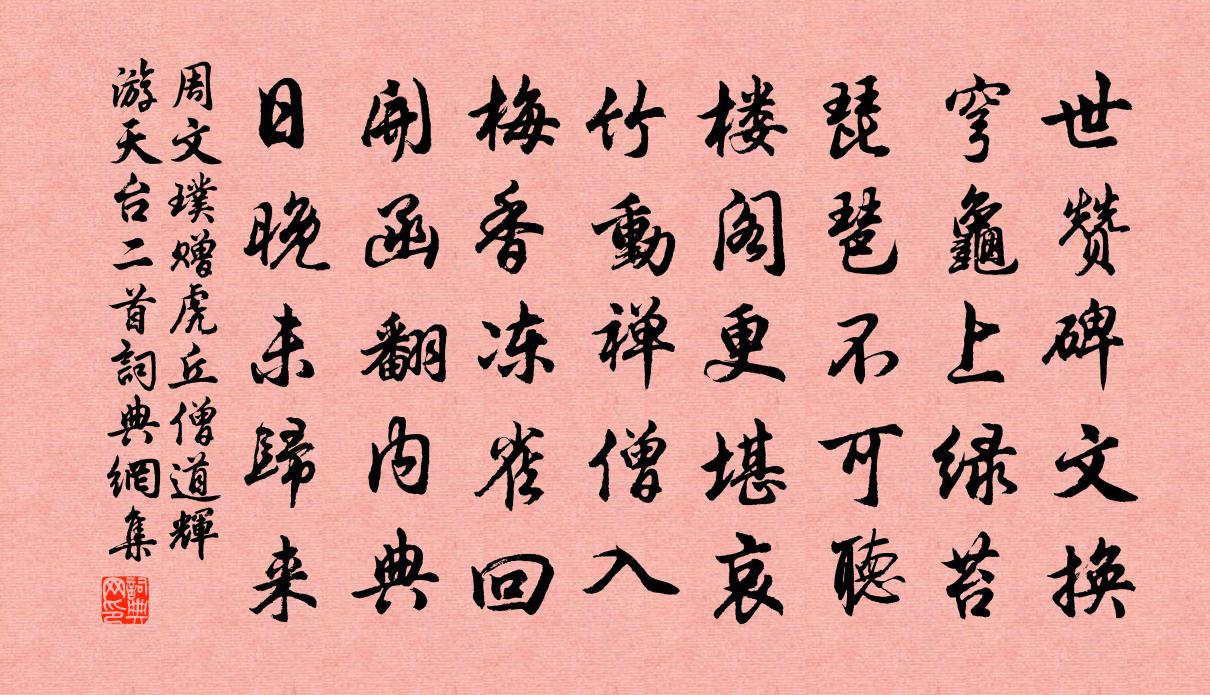 世赞碑文换
穹龜上绿苔
琵琶不可聽
楼阁更堪哀
竹動禅僧入
梅香冻雀回
開函翻内典
日晚未歸来
周文璞赠虎丘僧道輝
游天台二首詞典網集
詞典网印